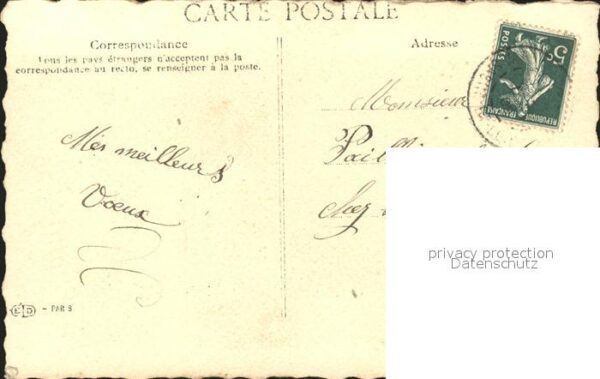 CARTE POSTALE
Correspondance
Tous les pays étrangers n'acceptent pas la
correspondance au recto, se renseigner à la poste.
Mes meilleurs
Voeux
ELD - PARIS
Adresse
5c
POSTES
REPUBLIQUE FRANÇAISE
Monsieur
Chez
privacy protection
Datenschutz